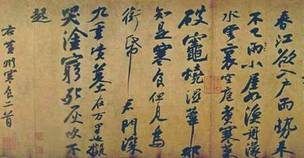 春江欲入戶雨勢來
不已雨小屋如漁舟濛濛
水雲裏空庖煮寒菜
破竈燒濕葦那
知是寒食但見烏
銜帋君門深
九重墳墓在万里也擬
哭塗窮死灰吹不
起
右黃州寒食二首